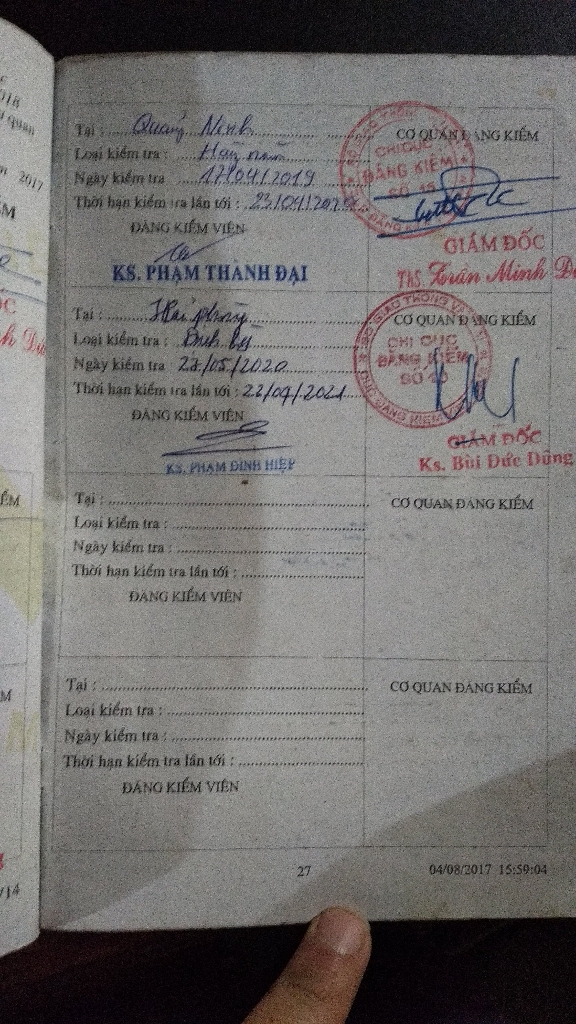 Tại : Quảng Ninh
CƠ QUAN ĐĂNG KIỂM
Loại kiểm tra : Hàng năm
Ngày kiểm tra 17/04/2019
Thời hạn kiểm tra lần tới :
ĐĂNG KIỂM VIÊN
KS. PHẠM THÀNH ĐẠI
CHI CỤC
ĐĂNG KIỂM
SỐ 15
GIÁM ĐỐC
ThS. Trần Minh
Tại : Hải phòng
CƠ QUAN ĐĂNG KIỂM
Loại kiểm tra :
Ngày kiểm tra 22/05/2020
Thời hạn kiểm tra lần tới : 22/04/2021
ĐĂNG KIỂM VIÊN
KS. PHẠM ĐÌNH HIỆP
CHI CỤC
ĐĂNG KIỂM
SỐ
GIÁM ĐỐC
Ks. Bùi Đức Dũng
Tại :
CƠ QUAN ĐĂNG KIỂM
Loại kiểm tra :
Ngày kiểm tra :
Thời hạn kiểm tra lần tới :
ĐĂNG KIỂM VIÊN
Tại :
CƠ QUAN ĐĂNG KIỂM
Loại kiểm tra :
Ngày kiểm tra :
Thời hạn kiểm tra lần tới :
ĐĂNG KIỂM VIÊN
27
04/08/2017 15:59:04